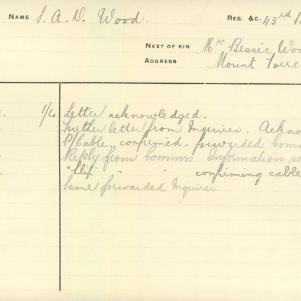 NAME S. A. D. Wood. REG. &C. 43rd B
NEXT OF KIN Mrs Bessie Woo
ADDRESS Mount Torre
1/10 Letter acknowledged.
Further letter from Inquirer. Ackno
P/Cable confirmed. forwarded Comm
Reply from Comms. Information se
"Slip" " " confirming cable
Same forwarded Inquirer